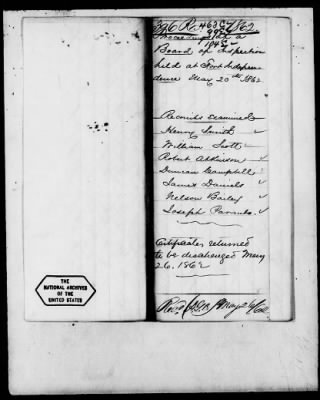 396 R. 463 C 1862
Proceedings of a
Board of Inspection
held at Fort Indepen-
dence May 20th 1862
Recruits examined
Henry Smith
William Scott
Robert Atkinson
Duncan Campbell
James Daniels
Nelson Bailey
Joseph
Certificates returned
to be discharged May
26. 1862
Recd May 26/62
THE
NATIONAL ARCHIVES
OF THE
UNITED STATES